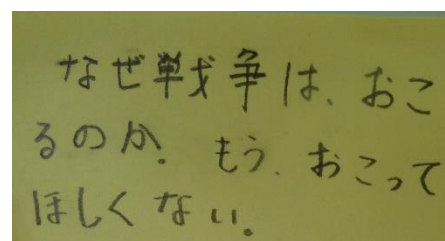 なぜ戦争は、おこ
るのか。もう、おこって
ほしくない。